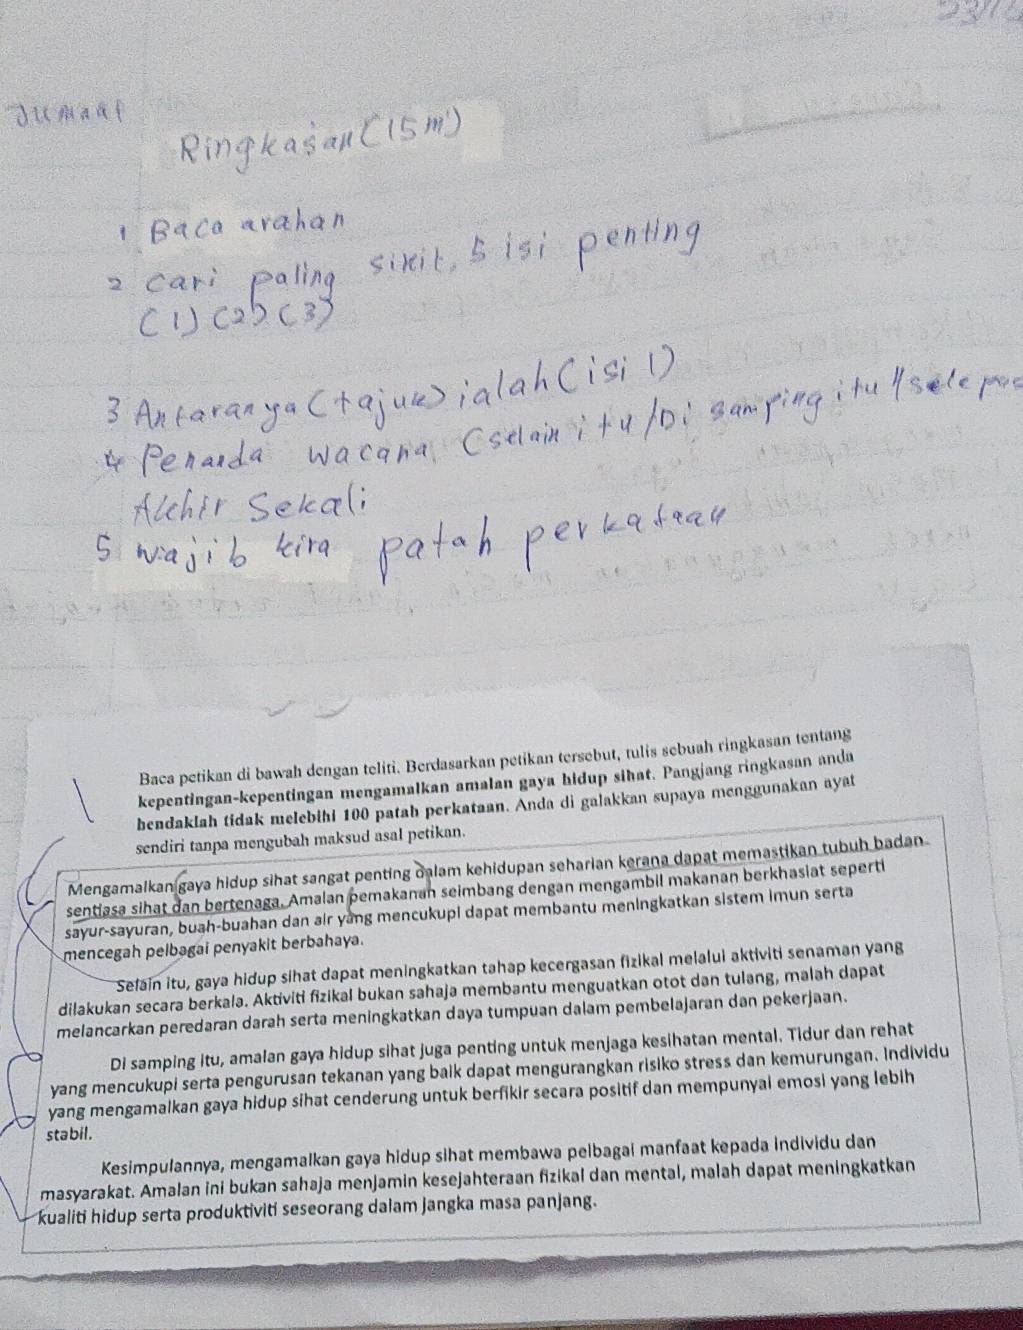 Jumaat
Ringkasan (15m)
1 Baca arahan
2 cari paling sikit, 5 isi penting
(1) (2) (3)
3 Antaranya (tajuk) ialah (isi 1)
4 Penanda wacana (selain itu / Di samping itu // selepas
Akhir Sekali
5 wajib kira patah perkataan
Baca petikan di bawah dengan teliti. Berdasarkan petikan tersebut, tulis sebuah ringkasan tentang
kepentingan-kepentingan mengamalkan amalan gaya hidup sihat. Pangjang ringkasan anda
hendaklah tidak melebihi 100 patah perkataan. Anda di galakkan supaya menggunakan ayat
sendiri tanpa mengubah maksud asal petikan.
Mengamalkan gaya hidup sihat sangat penting dalam kehidupan seharian kerana dapat memastikan tubuh badan
sentiasa sihat dan bertenaga. Amalan pemakanan seimbang dengan mengambil makanan berkhasiat seperti
sayur-sayuran, buah-buahan dan air yang mencukupi dapat membantu meningkatkan sistem imun serta
mencegah pelbagai penyakit berbahaya.
Selain itu, gaya hidup sihat dapat meningkatkan tahap kecergasan fizikal melalui aktiviti senaman yang
dilakukan secara berkala. Aktiviti fizikal bukan sahaja membantu menguatkan otot dan tulang, malah dapat
melancarkan peredaran darah serta meningkatkan daya tumpuan dalam pembelajaran dan pekerjaan.
Di samping itu, amalan gaya hidup sihat juga penting untuk menjaga kesihatan mental. Tidur dan rehat
yang mencukupi serta pengurusan tekanan yang baik dapat mengurangkan risiko stress dan kemurungan. Individu
yang mengamalkan gaya hidup sihat cenderung untuk berfikir secara positif dan mempunyai emosi yang lebih
stabil.
Kesimpulannya, mengamalkan gaya hidup sihat membawa pelbagai manfaat kepada individu dan
masyarakat. Amalan ini bukan sahaja menjamin kesejahteraan fizikal dan mental, malah dapat meningkatkan
kualiti hidup serta produktiviti seseorang dalam jangka masa panjang.